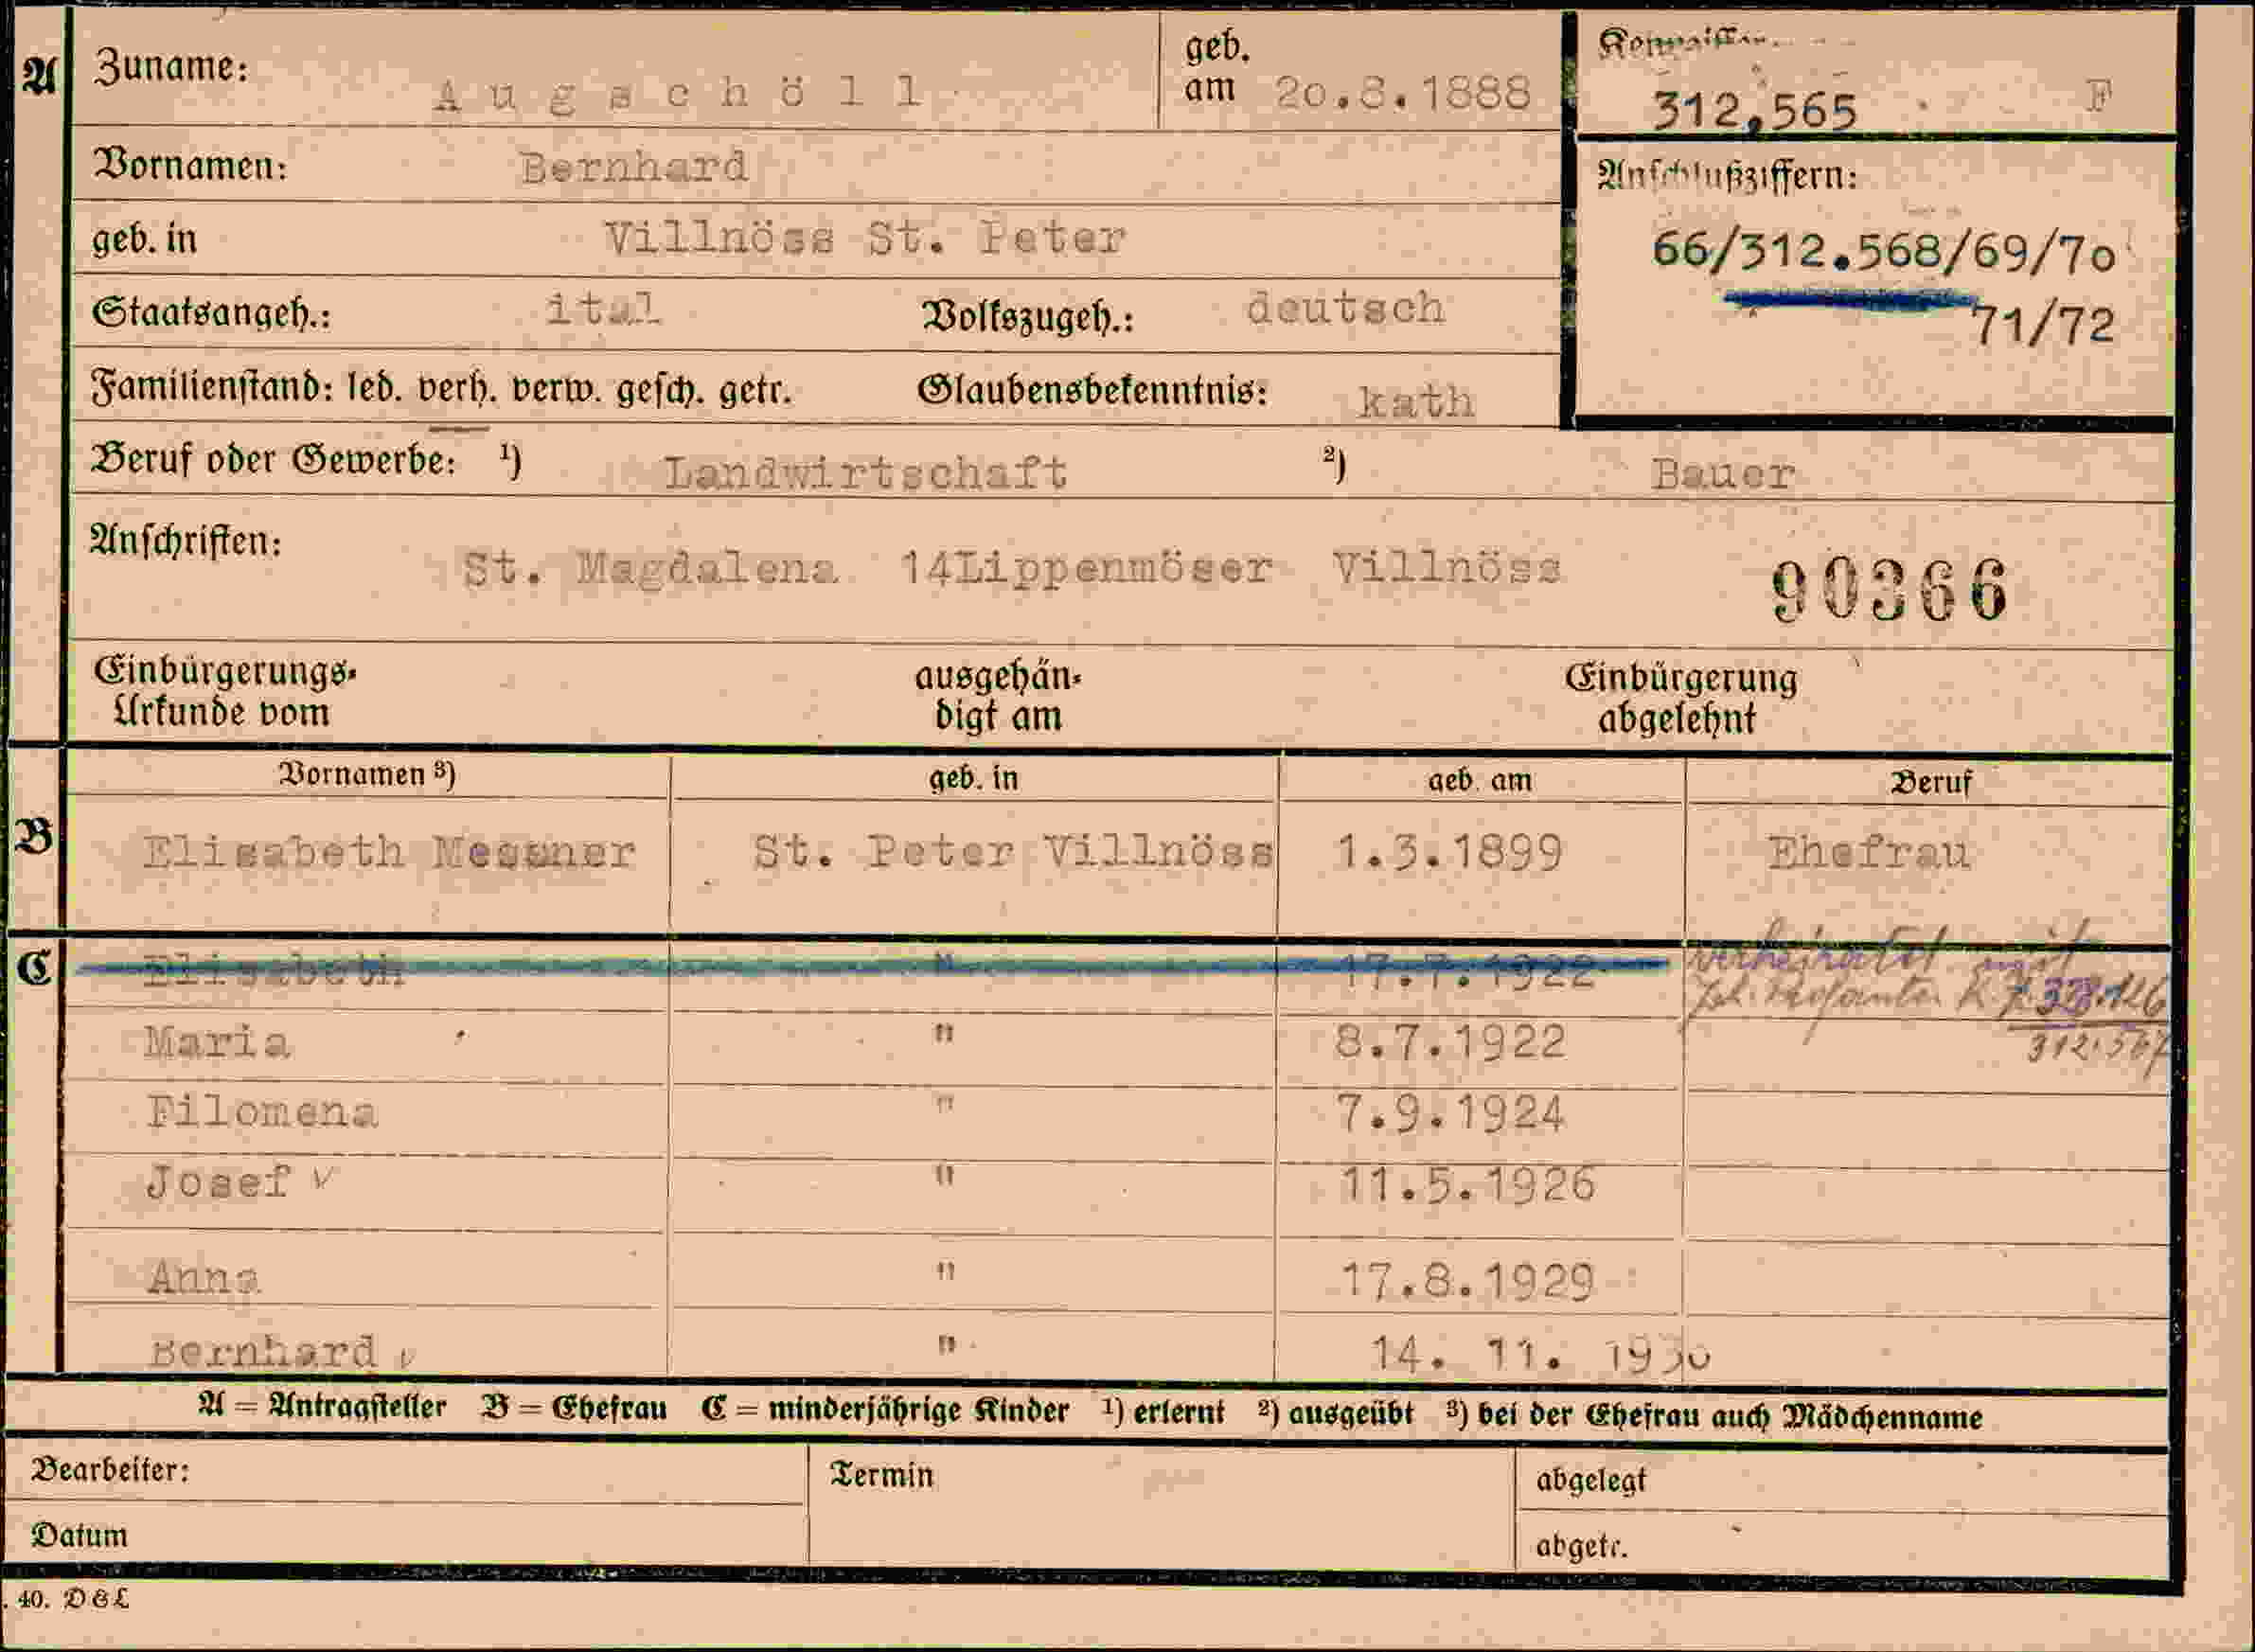 A Zuname: Augschöll geb. am 20.8.1888
312,565 F
Vornamen: Bernhard
Anschlußziffern:
geb. in Villnöss St. Peter
66/312.568/69/70
71/72
Staatsangeh.: ital Volkszugeh.: deutsch
Familienstand: led. verh. verw. gesch. getr. Glaubensbekenntnis: kath
Beruf oder Gewerbe: 1) Landwirtschaft 2) Bauer
Anschriften: St. Magdalena 14Lippenmöser Villnöss 90366
Einbürgerungs- ausgehän- Einbürgerung
Urkunde vom digt am abgelehnt
Vornamen 3) geb. in geb. am Beruf
B Elisabeth Messner St. Peter Villnöss 1.3.1899 Ehefrau
C Elisabeth " 17.7.1922 verheiratet mit
K.Z. 338.126
Maria " 8.7.1922 312.567
Filomena " 7.9.1924
Josef v " 11.5.1926
Anna " 17.8.1929
Bernhard v " 14. 11. 1930
A = Antragsteller B = Ehefrau C = minderjährige Kinder 1) erlernt 2) ausgeübt 3) bei der Ehefrau auch Mädchenname
Bearbeiter: Termin abgelegt
Datum abgetr.
. 40. D & L